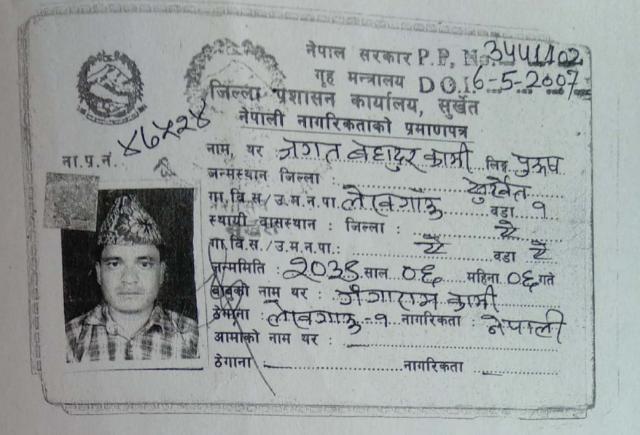 नेपाल सरकार P.P. No. 3441102
गृह मन्त्रालय D.O.I. 6-5-2007
जिल्ला प्रशासन कार्यालय, सुर्खेत
नेपाली नागरिकताको प्रमाणपत्र
ना.प्र.नं.
नाम, थर जगत बहादुर कामी लिङ्ग पुरूष
जन्मस्थान जिल्ला : सुर्खेत
गा.वि.स/उ.म.न.पा. लेखगाऊ वडा १
स्थायी वासस्थान : जिल्ला : ऐ
गा.वि.स./उ.म.न.पा.: ऐ वडा ऐ
जन्ममिति : साल ०६ महिना ०६ गते
बाबुको नाम थर : गंगाराम कामी
ठेगाना : लेखगाऊ-१ नागरिकता : नेपाली
आमाको नाम थर :
ठेगाना नागरिकता